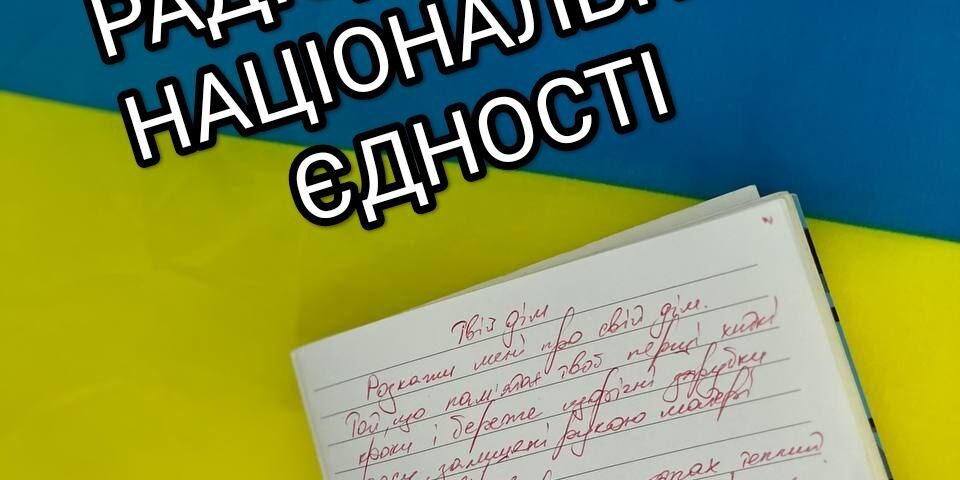 РАДІО
НАЦІОНАЛЬН
ЄДНОСТІ
Твій дім
Розкажи мені про свій дім.
Той, що пам'ятає твої перші хиткі
кроки і береже щорічні зарубки
залишені рукою матері
теплий